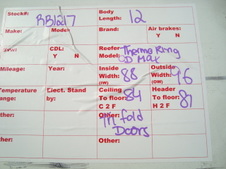 Stock#: RB1217 Body Length: 12
Make: Model: Brand: Air brakes: Y N
CDL: Y N Reefer Model: Thermo King V MAX
Mileage: Year: Inside Width: 88 Outside Width: 96
Temperature Elect. Stand by Ceiling To floor: 84 C 2 F Header To floor: 81 H 2 F
Other: fold Doors
Other: